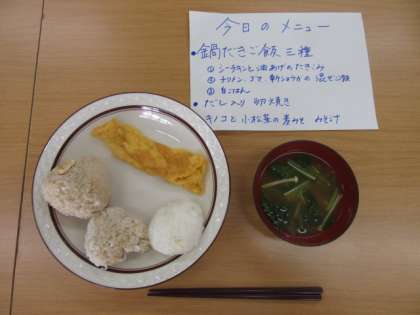 今日のメニュー
●鍋だきご飯三種
① シーチキンと油あげのたきこみ
② チリメン、ゴマ、新ショウガの混ぜご飯
③ 白ごはん
● だし入り 卵焼き
キノコと小松菜の麦みそ みそ汁